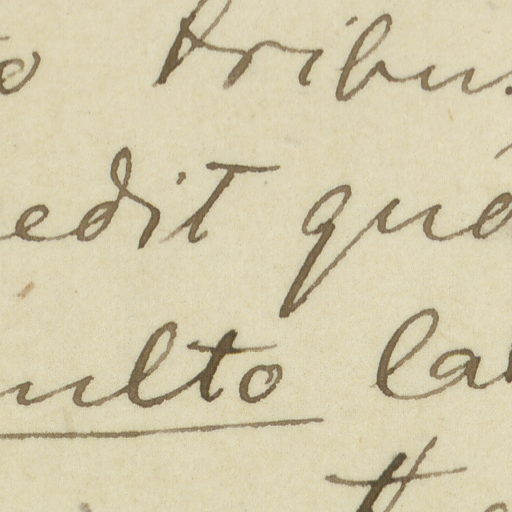 o tribus
edit quo
ulto la